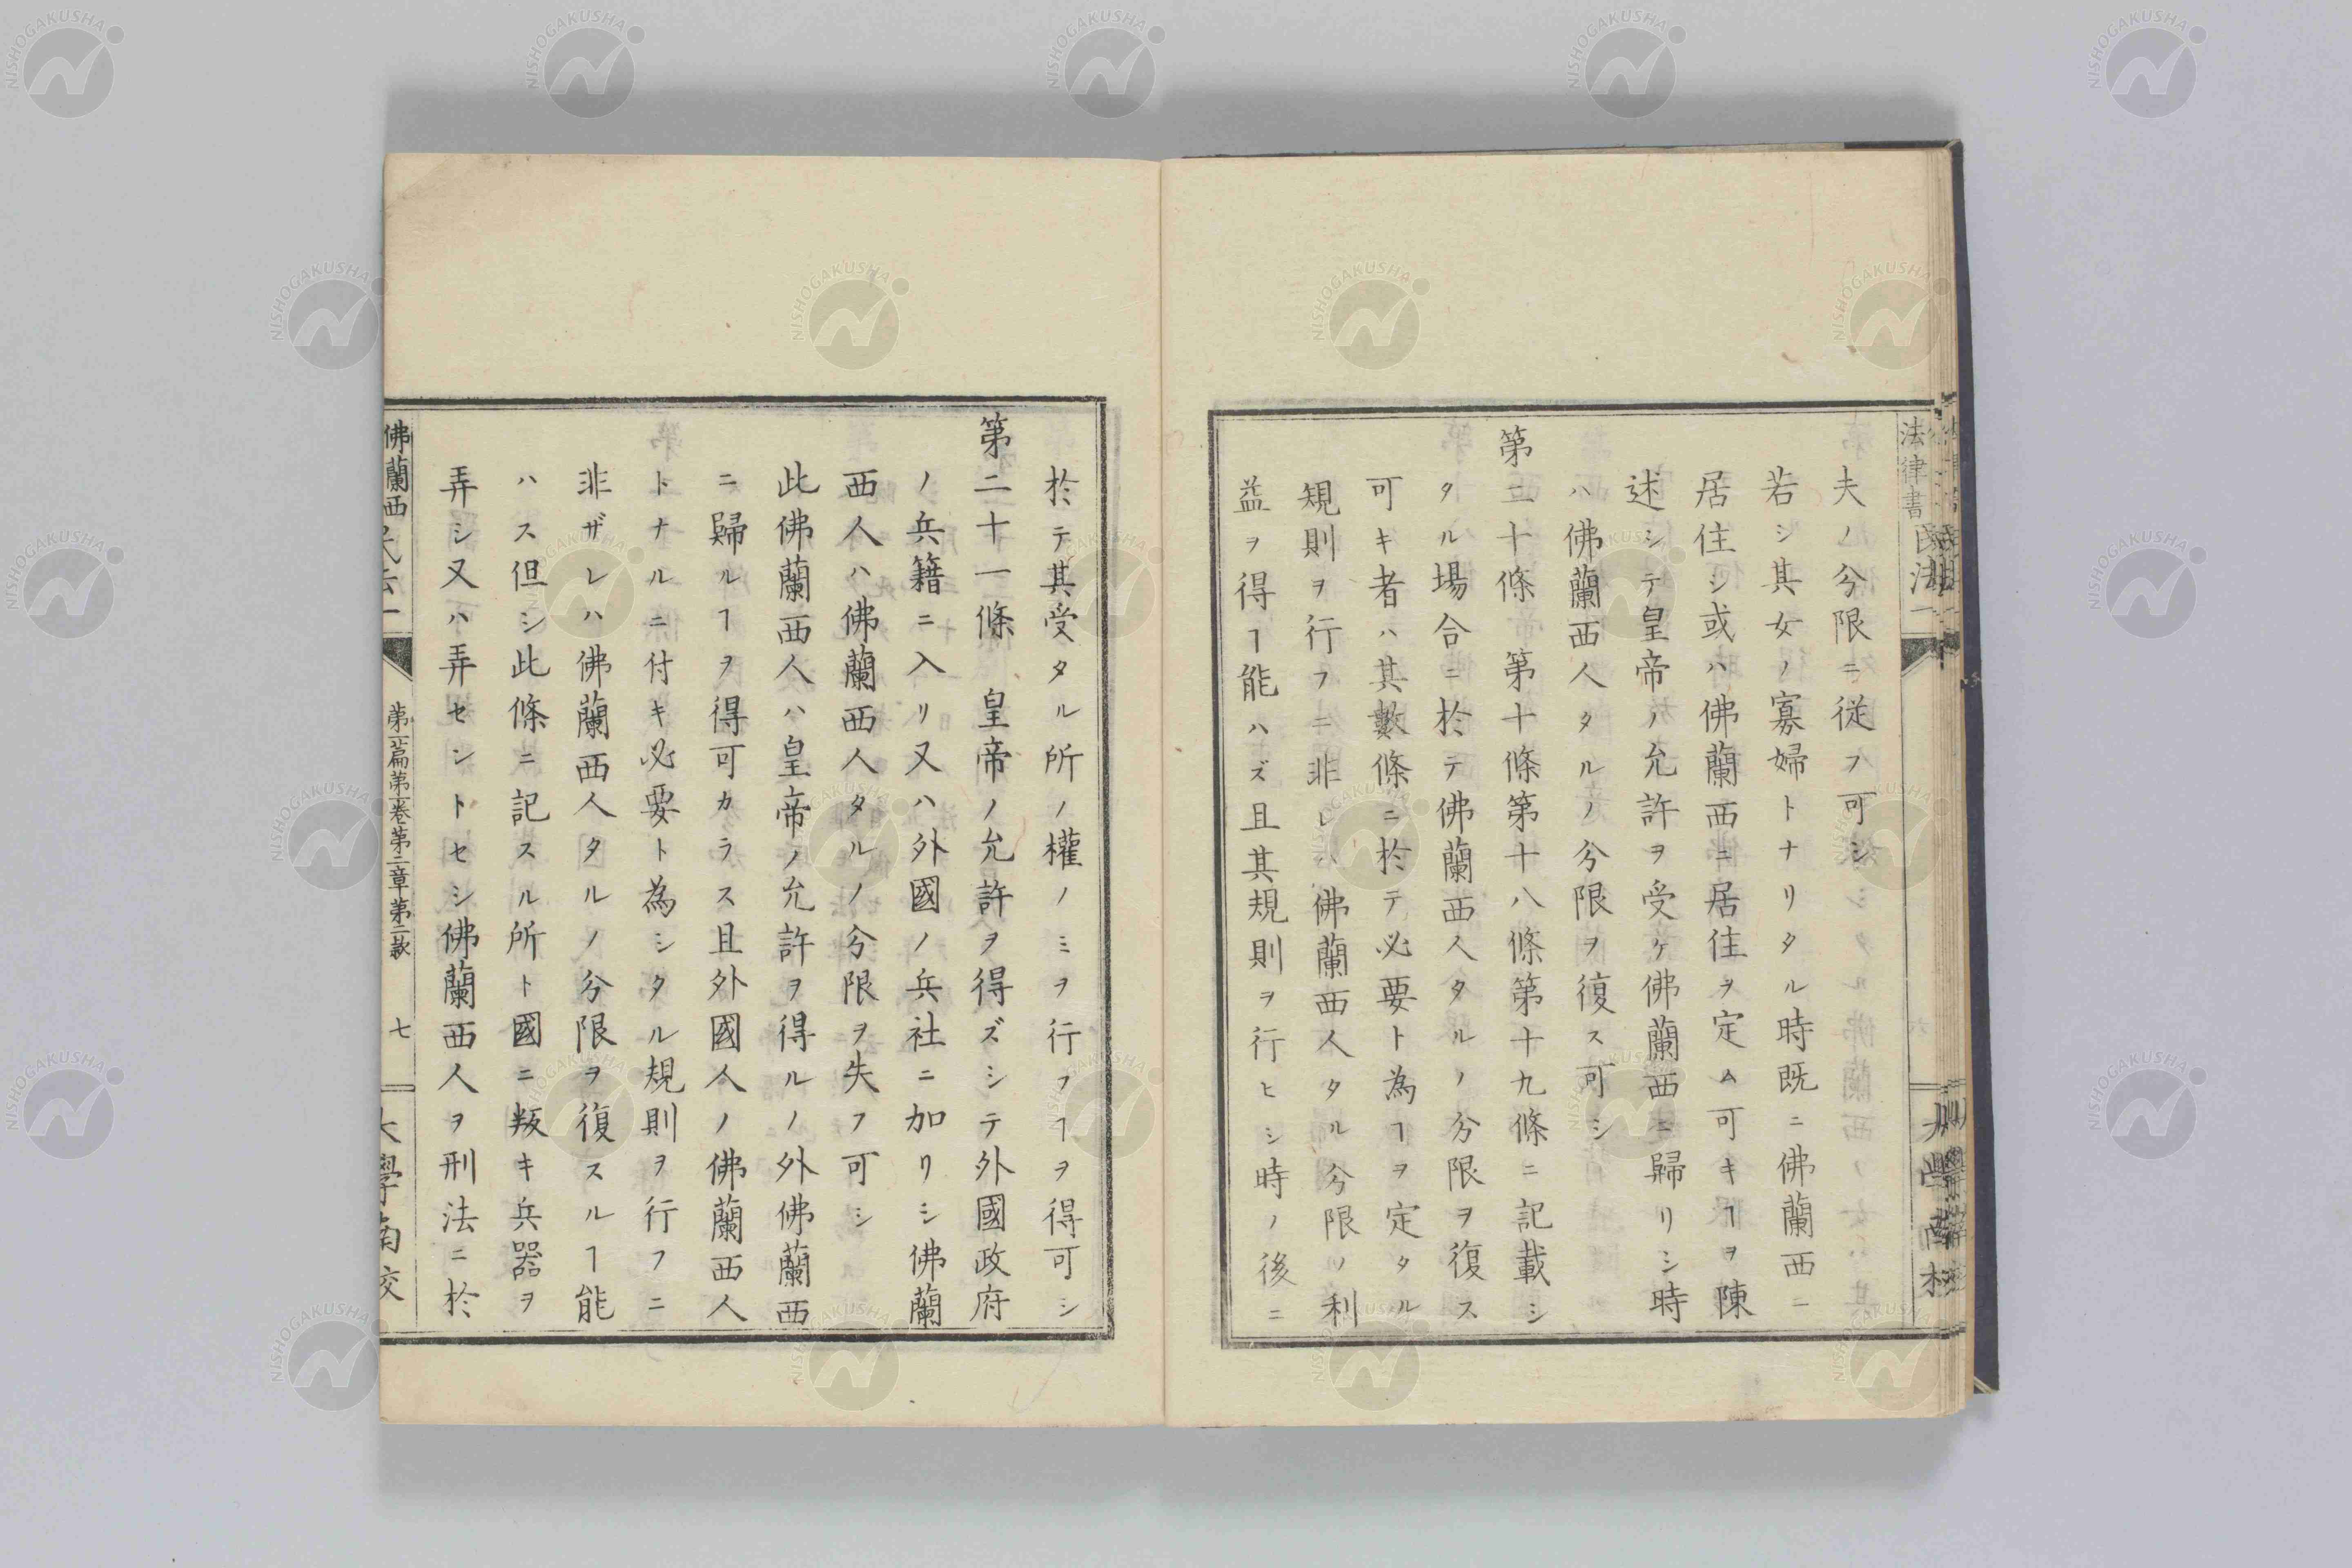 夫ノ分限ニ従フ可シ
若シ其女ノ寡婦トナリタル時既ニ佛蘭西ニ
居住シ或ハ佛蘭西ニ居住ヲ定ム可キヿヲ陳
述シテ皇帝ノ允許ヲ受ケ佛蘭西ニ歸リシ時
ハ佛蘭西人タルノ分限ヲ復ス可シ
第二十條 第十條第十八條第十九條ニ記載シ
タル場合ニ於テ佛蘭西人タルノ分限ヲ復ス
可キ者ハ其數條ニ於テ必要ト為ヿヲ定タル
規則ヲ行フニ非レハ佛蘭西人タル分限ノ利
益ヲ得ヿ能ハズ且其規則ヲ行ヒシ時ノ後ニ
於テ其受タル所ノ權ノミヲ行フヿヲ得可シ
第二十一條 皇帝ノ允許ヲ得ズシテ外國政府
ノ兵籍ニ入リ又ハ外國ノ兵社ニ加リシ佛蘭
西人ハ佛蘭西人タルノ分限ヲ失フ可シ
此佛蘭西人ハ皇帝ノ允許ヲ得ルノ外佛蘭西
ニ歸ルヿヲ得可カラス且外國人ノ佛蘭西人
トナルニ付キ必要ト為シタル規則ヲ行フニ
非ザレハ佛蘭西人タルノ分限ヲ復スルヿ能
ハス但シ此條ニ記スル所ト國ニ叛キ兵器ヲ
弄シ又ハ弄セントセシ佛蘭西人ヲ刑法ニ於
佛蘭西
第一篇第一卷第二章第二款
七
法律書
NISHOGAKUSHA